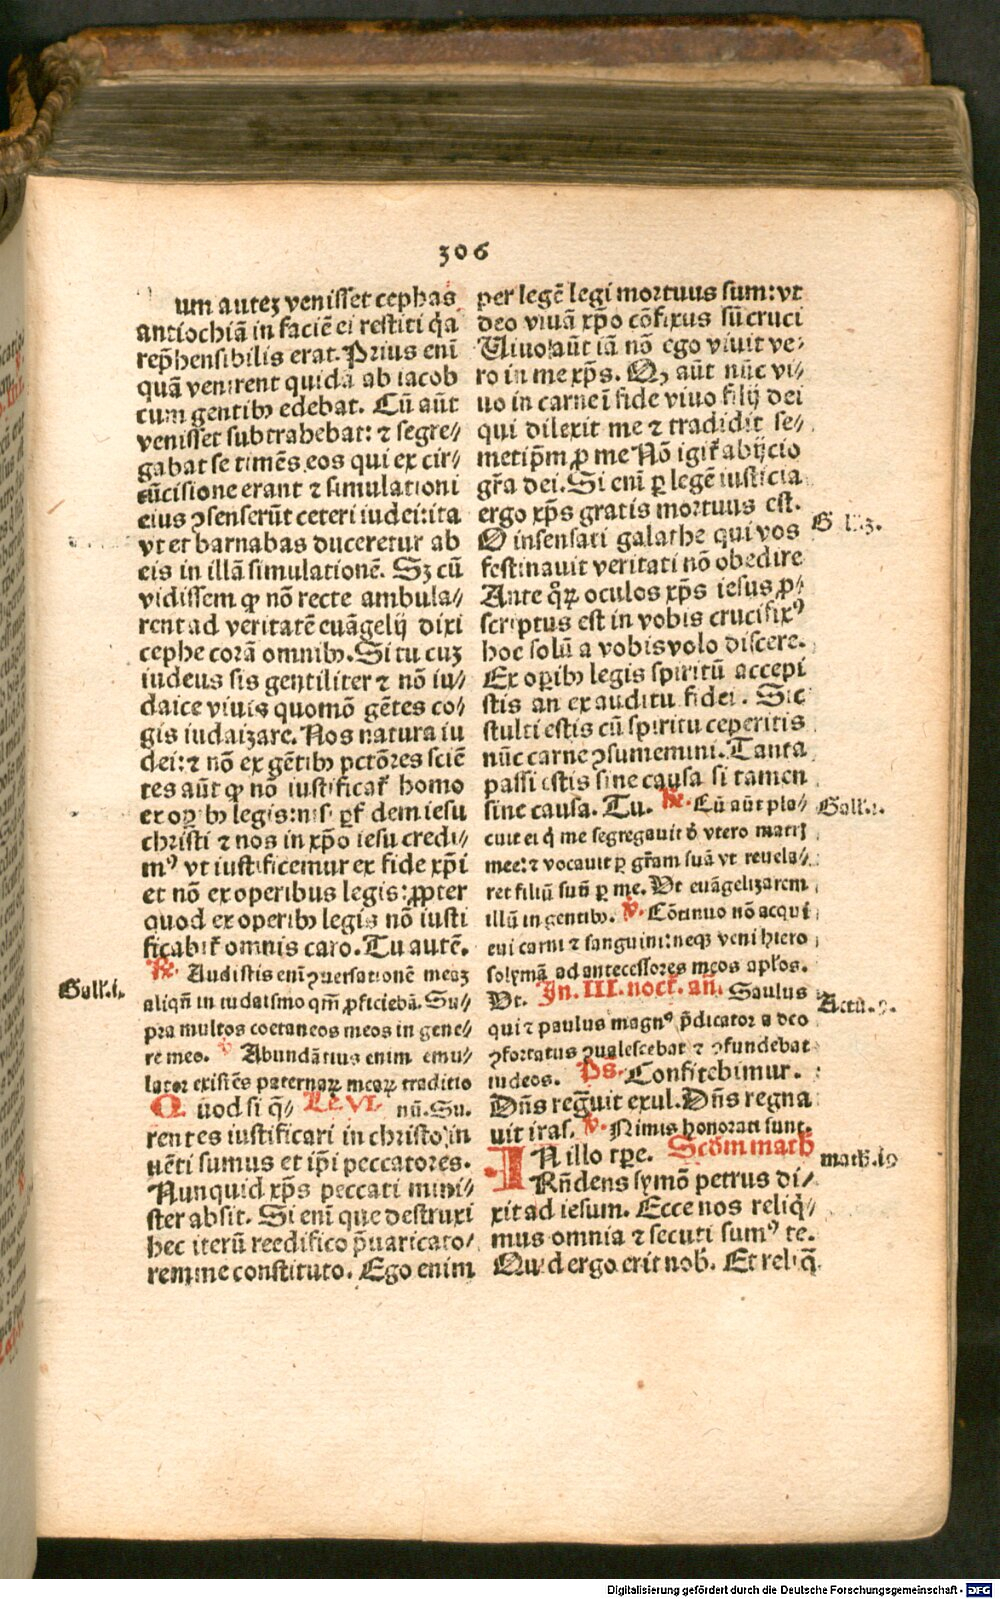 306
um autez venisset cephas
antiochiā in faciē ei restiti q̄a
rep̄hensibilis erat. Prius enī
quā venirent quidā ab iacob
cum gentibꝫ edebat. Cū aūt
venisset subtrahebat: ⁊ segre⸗
gabat se timēs eos qui ex cir⸗
cūcisione erant ⁊ simulationi
eius ꝯsenserūt ceteri iudei:ita
vt et barnabas duceretur ab
eis in illā simulationē. Sꝫ cū
vidissem ꝙ nō recte ambula⸗
rent ad veritatē euāgelij dixi
cephe corā omnibꝫ. Si tu cuꝫ
iudeus sis gentiliter ⁊ nō iu⸗
daice viuis quomō gētes co⸗
gis iudaizare. Nos natura iu
dei:⁊ nō ex gētibꝫ pctōres sciē
tes aūt ꝙ nō iustificat᷑ homo
ex oꝑibꝫ legis:nisi ꝑ fidem iesu
christi ⁊ nos in xp̄o iesu credi⸗
mꝰ vt iustificemur ex fide xp̄i
et nō ex operibus legis:ꝓpter
quod ex operibꝫ legis nō iusti
ficabit᷑ omnis caro. Tu autē.
℟. Audistis enī ꝯuersationē meaꝫ
Gall'.i.
aliqn̄ in iudaismo qm̄ ꝓficiebā. Su⸗
pra multos coetaneos meos in gene⸗
re meo. ℣ Abundātius enim emu⸗
lator existēs paternaꝝ meaꝝ traditio
nū. Su.
Quod si q̄⸗ Le.VI.
rentes iustificari in christo in
uēti sumus et ip̄i peccatores.
Nunquid xp̄s peccati mini⸗
ster absit. Si enī que destruxi
hec iterū reedifico p̄uaricato⸗
rem me constituto. Ego enim
per legē legi mortuus sum:vt
deo viuā xp̄o cōfixus sū cruci
Uiuo aūt iā nō ego viuit ve⸗
ro in me xp̄s. Qꝫ aūt nūc vi⸗
uo in carne ī fide viuo filij dei
qui dilexit me ⁊ tradidit se⸗
metip̄m ꝓ me Nō igit᷑ abijcio
gr̄a dei. Si enī ꝑ legē iusticia
ergo xp̄s gratis mortuus est.
O insensati galathe qui vos
festinauit veritati nō obedire
Ante qͦꝝ oculos xp̄s iesus ꝓ⸗
scriptus est in vobis crucifixꝰ
hoc solū a vobis volo discere.
Ex oꝑibꝫ legis spiritū accepi
stis an ex auditu fidei. Sic
stulti estis cū spiritu ceperitis
nūc carne ꝯsumemini. Tanta
passi estis sine causa si tamen
sine causa. Tu. ℟. Cū aūt pla⸗
Gall'.i.
cuit ei q̇ me segregauit d̓ vtero matrꝭ
mee:⁊ vocauit ꝑ gr̄am suā vt reuela⸗
ret filiū suū ꝑ me. Vt euāgelizarem
illū in gentibꝫ. ℣. Cōtinuo nō acqui
eui carni ⁊ sanguini:neqꝫ veni hiero
solymā ad antecessores meos apl̓os.
Vt. In. III. noct̓. an̄. Saulus
Actu.9.
qui ⁊ paulus magnꝰ p̄dicator a deo
ꝯfortatus ꝯualescebat ⁊ ꝯfundebat
iudeos. Ps̄. Confitebimur.
Dn̄s regnuit exul. Dn̄s regna
uit iras. ℣. Nimis honorati sunt.
IN illo tꝑe. Scdm math̄
math̓.19
Rn̄dens symō petrus di⸗
xit ad iesum. Ecce nos reliq̄⸗
mus omnia ⁊ secuti sumꝰ te.
Quid ergo erit nob̓. Et reliq̄.
Digitalisierung gefördert durch die Deutsche Forschungsgemeinschaft - DFG